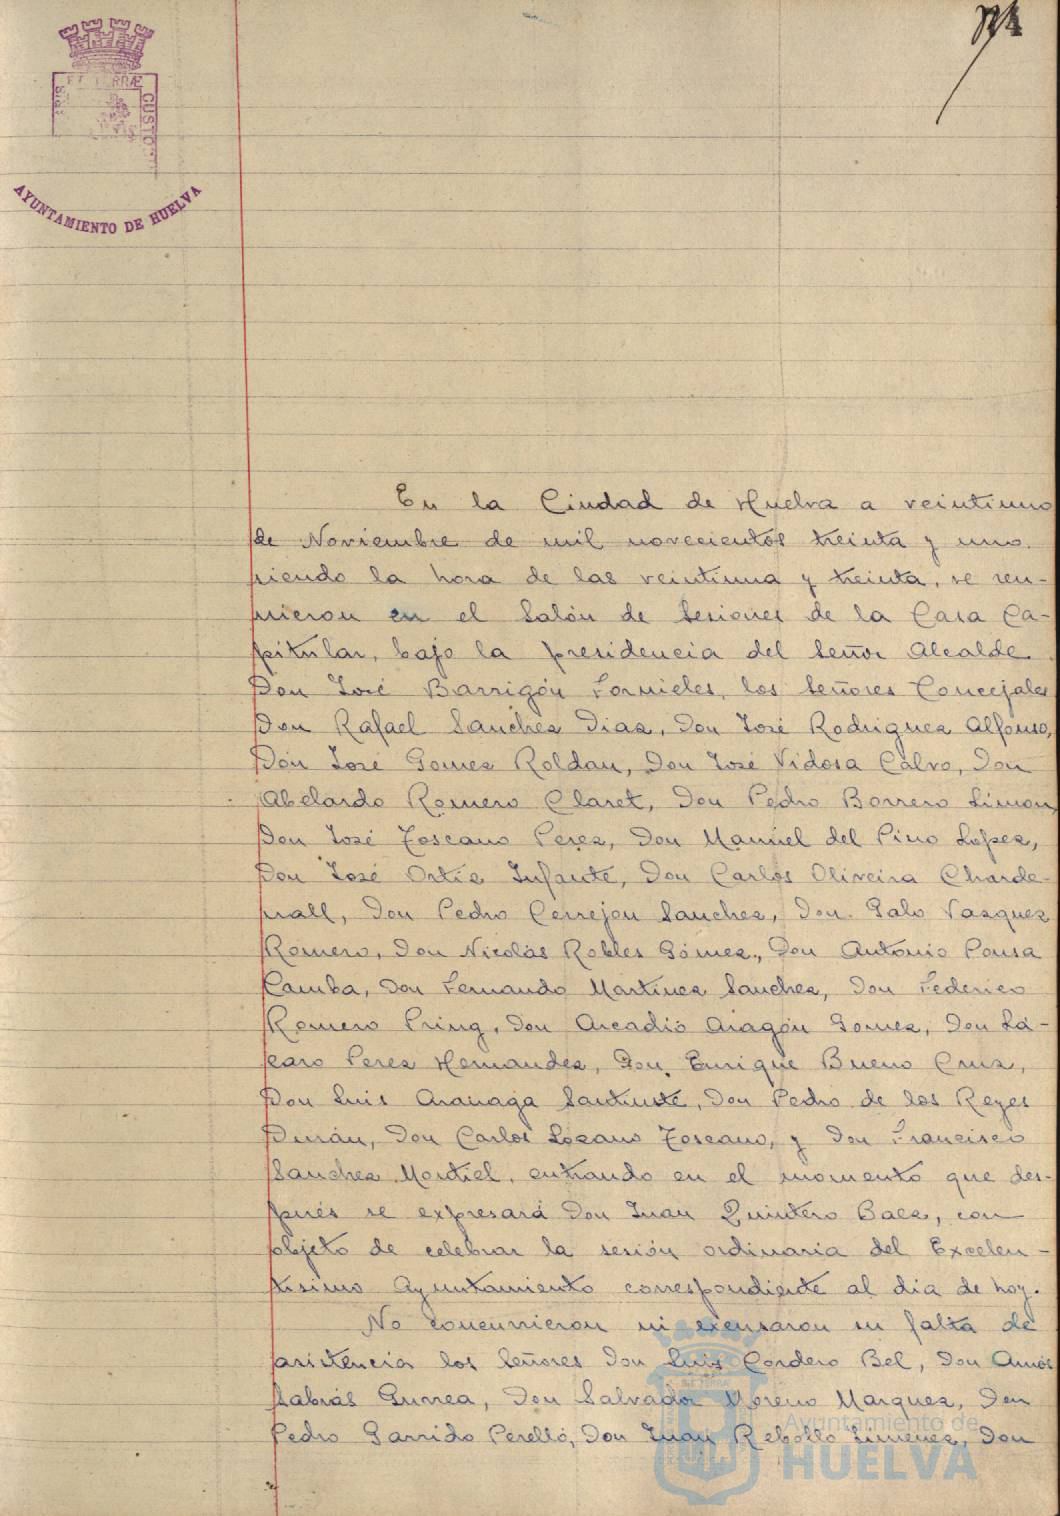 ET TERRÆ
CUSTO
AYUNTAMIENTO DE HUELVA
En la Ciudad de Huelva a veintiuno
de Noviembre de mil novecientos treinta y uno,
siendo la hora de las veintiuna y treinta, se reu-
nieron en el Salón de Sesiones de la Casa Ca-
pitular, bajo la presidencia del Señor Alcalde
Don José Barrigón Fornieles, los Señores Concejales
Don Rafael Sanchez Diaz, Don José Rodriguez Alfonso,
Don José Gomez Roldan, Don José Vidosa Calvo, Don
Abelardo Romero Claret, Don Pedro Borrero Limon,
Don José Toscano Perez, Don Manuel del Pino López,
Don José Ortiz Infante, Don Carlos Oliveira Charde-
nall, Don Pedro Cerrejon Sanchez, Don Galo Vazquez
Romero, Don Nicolás Robles Gómez, Don Antonio Pousa
Camba, Don Fernando Martinez Sanchez, Don Federico
Romero Pring, Don Arcadio Aragón Gomez, Don Lá-
zaro Perez Hernandez, Don Enrique Bueno Cruz,
Don Luis Aranaga Santuste, Don Pedro de los Reyes
Durán, Don Carlos Lozano Toscano, y Don Francisco
Sanchez Montiel, entrando en el momento que des-
pués se expresará Don Juan Quintero Baez, con
objeto de celebrar la sesión ordinaria del Excelen-
tisimo Ayuntamiento correspondiente al dia de hoy.
No concurrieron ni excusaron su falta de
asistencia los Señores Don Luis Cordero Bel, Don Amós
Sabrás Gurrea, Don Salvador Moreno Marquez, Don
Pedro Garrido Perelló, Don Juan Rebollo Jimenez, Don
Ayuntamiento de
HUELVA